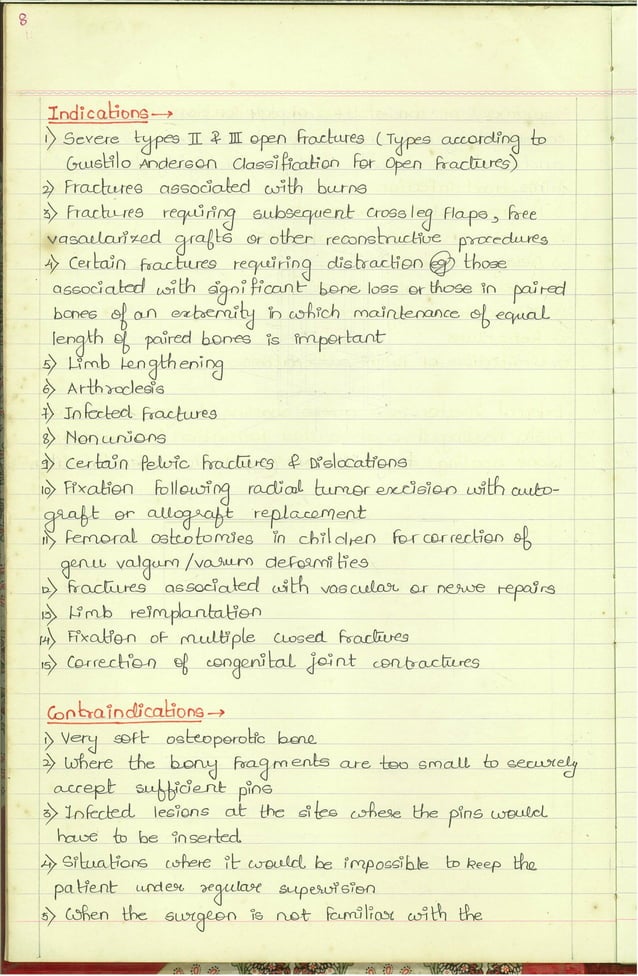 8
Indications →
1) Severe types II & III open fractures (Types according to
Gustilo Anderson Classification for Open Fractures)
2) Fractures associated with burns
3) Fractures requiring subsequent cross leg flaps, free
vascularized grafts or other reconstructive procedures
4) Certain fractures requiring distraction eg those
associated with significant bone loss or those in paired
bones of an extremity in which maintenance of equal
length of paired bones is important
5) Limb lengthening
6) Arthrodesis
7) Infected fractures
8) Nonunions
9) Certain Pelvic fractures & Dislocations
10) Fixation following radial tumor excision with auto-
graft or allograft replacement
11) Femoral osteotomies in children for correction of
genu valgum/varum deformities
12) Fractures associated with vascular or nerve repairs
13) Limb reimplantation
14) Fixation of multiple closed fractures
15) Correction of congenital joint contractures
Contraindications →
1) Very soft osteoporotic bone
2) Where the bony fragments are too small to securely
accept sufficient pins
3) Infected lesions at the sites where the pins would
have to be inserted
4) Situations where it would be impossible to keep the
patient under regular supervision
5) When the surgeon is not familiar with the